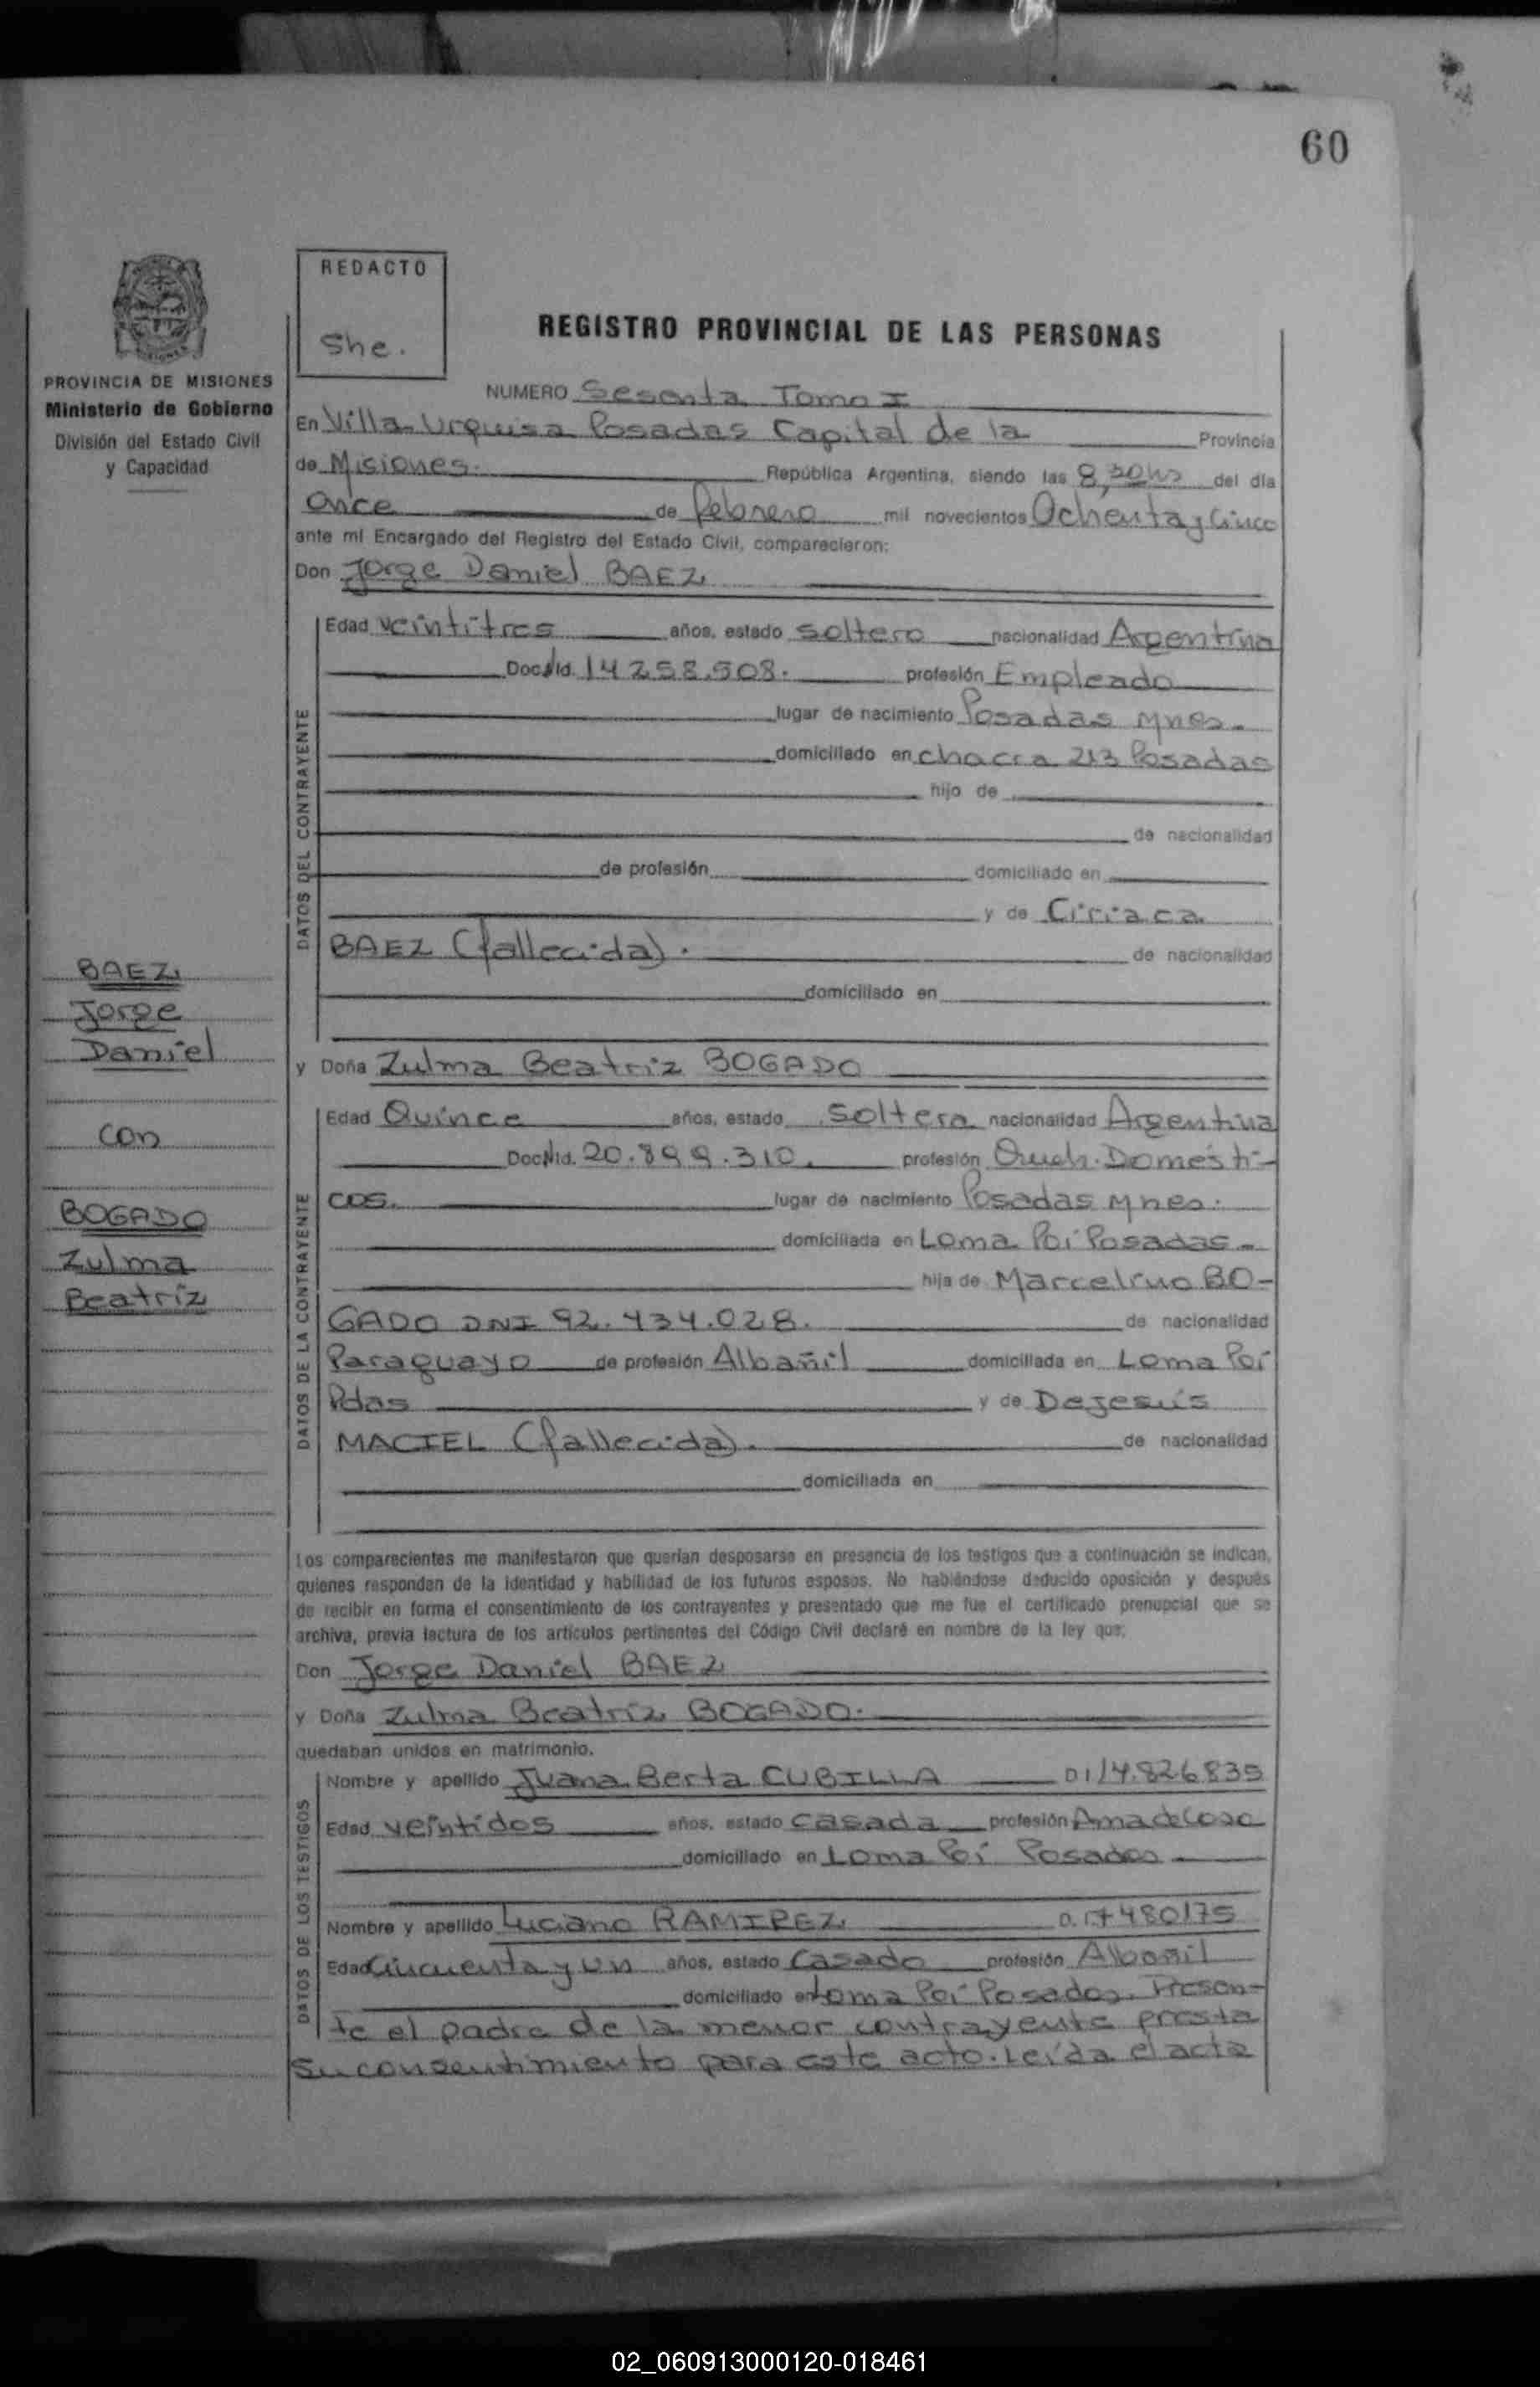 60
REDACTO
She.
PROVINCIA DE MISIONES
Ministerio de Gobierno
División del Estado Civil
y Capacidad
REGISTRO PROVINCIAL DE LAS PERSONAS
NUMERO Sesenta Tomo I
En Villa Urquisa Posadas Capital de la Provincia
de Misiones. República Argentina, siendo las 8,30hs del día
Once de febrero mil novecientos Ochenta y Cinco
ante mí Encargado del Registro del Estado Civil, comparecieron:
Don Jorge Daniel BAEZ
DATOS DEL CONTRAYENTE
Edad veintitres años, estado soltero nacionalidad Argentina
Doc. Nid. 14.258.508. profesión Empleado
lugar de nacimiento Posadas Mnes.
domiciliado en chacra 213 Posadas
hijo de
de nacionalidad
de profesión domiciliado en
y de Ciriaca
BAEZ (fallecida). de nacionalidad
domiciliado en
BAEZ
Jorge
Daniel
con
BOGADO
Zulma
Beatriz
y Doña Zulma Beatriz BOGADO
DATOS DE LA CONTRAYENTE
Edad Quince años, estado soltera nacionalidad Argentina
Doc. Nid. 20.899.310. profesión Queh. Domésti-
cos. lugar de nacimiento Posadas Mnes.
domiciliada en Loma Poi Posadas-
hija de Marcelino BO-
GADO DNI 92.434.028. de nacionalidad
Paraguayo de profesión Albañil domiciliada en Loma Poi
Pdas y de Dejesús
MACIEL (fallecida). de nacionalidad
domiciliada en
Los comparecientes me manifestaron que querían desposarse en presencia de los testigos que a continuación se indican,
quienes responden de la identidad y habilidad de los futuros esposos. No habiéndose deducido oposición y después
de recibir en forma el consentimiento de los contrayentes y presentado que me fue el certificado prenupcial que se
archiva, previa lectura de los artículos pertinentes del Código Civil declaré en nombre de la ley que:
Don Jorge Daniel BAEZ
y Doña Zulma Beatriz BOGADO.
quedaban unidos en matrimonio.
DATOS DE LOS TESTIGOS
Nombre y apellido Juana Berta CUBILLA 01/4.826835
Edad veintidos años, estado casada profesión Ama de casa
domiciliado en Loma Poi Posadas
Nombre y apellido Luciano RAMIREZ
Edad Cincuenta y un años, estado Casado profesión Albañil
domiciliado en Loma Poi Posadas. Presen-
te el padre de la menor contrayente presta
su consentimiento para este acto. Leída el acta
02_060913000120-018461